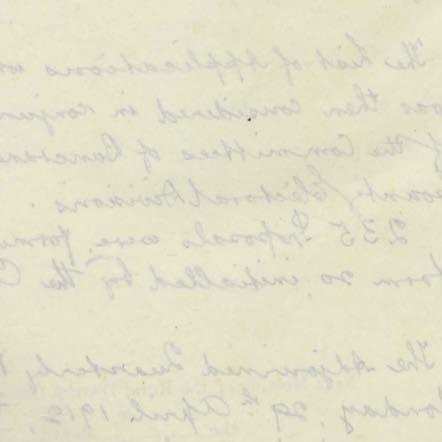 The List of Applications
was then considered in
of the Committees of
County/Electoral Divisions.
235 Proposals were
form so initialled by the C
The Adjourned Quarterly
Monday, 29th April 1912,